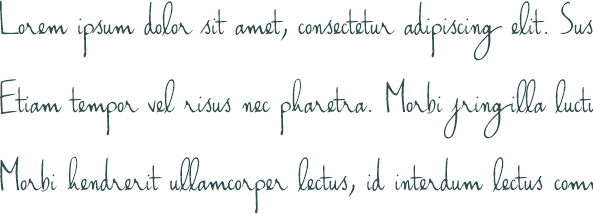 Lorem ipsum dolor sit amet, consectetur adipiscing elit. Sus
Etiam tempor vel risus nec pharetra. Morbi fringilla luctu
Morbi hendrerit ullamcorper lectus, id interdum lectus com